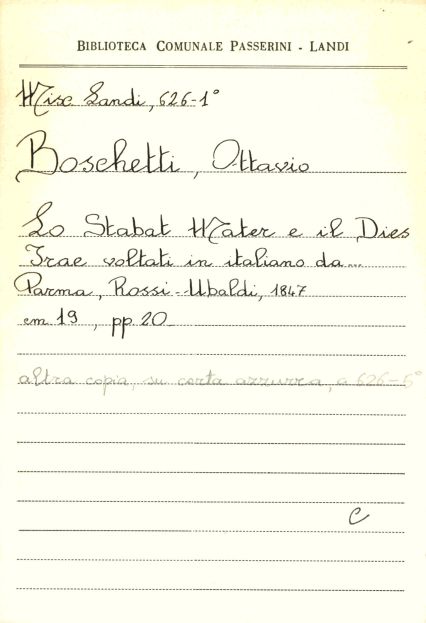 BIBLIOTECA COMUNALE PASSERINI - LANDI
Misc Landi, 626-1°
Boschetti, Ottavio
Lo Stabat Mater e il Dies
Irae voltati in italiano da...
Parma, Rossi-Ubaldi, 1847
cm 19, pp 20
altra copia, su carta azzurra, a 626-5°
C